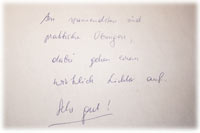 Am spannendsten sind
praktische Übungen,
dabei gehen einem
wirklich Lichter auf.
Sehr gut!